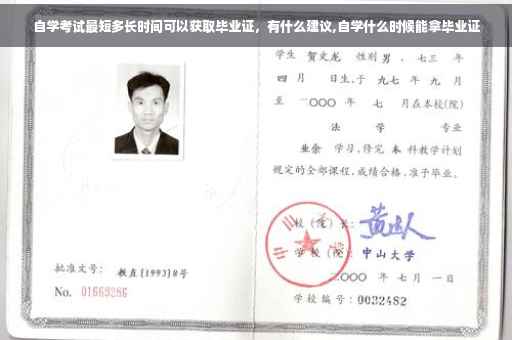 自学考试最短多长时间可以获取毕业证，有什么建议,自学什么时候能拿毕业证
学生 贺文龙 性别 男 、 七三 年
四 月 日生,于 九七 年 九 月
至 二〇〇〇 年 七 月在本校(院)
法 学 专业
业余 学习,修完 本 科教学计划
规定的全部课程,成绩合格,准予毕业。
校 (院) 长:
学 校 (院): 中山大学
二〇〇〇 年 七 月 一 日
批准文号: 教直[1993]8号
No. 01669286
学校编号: 0032482